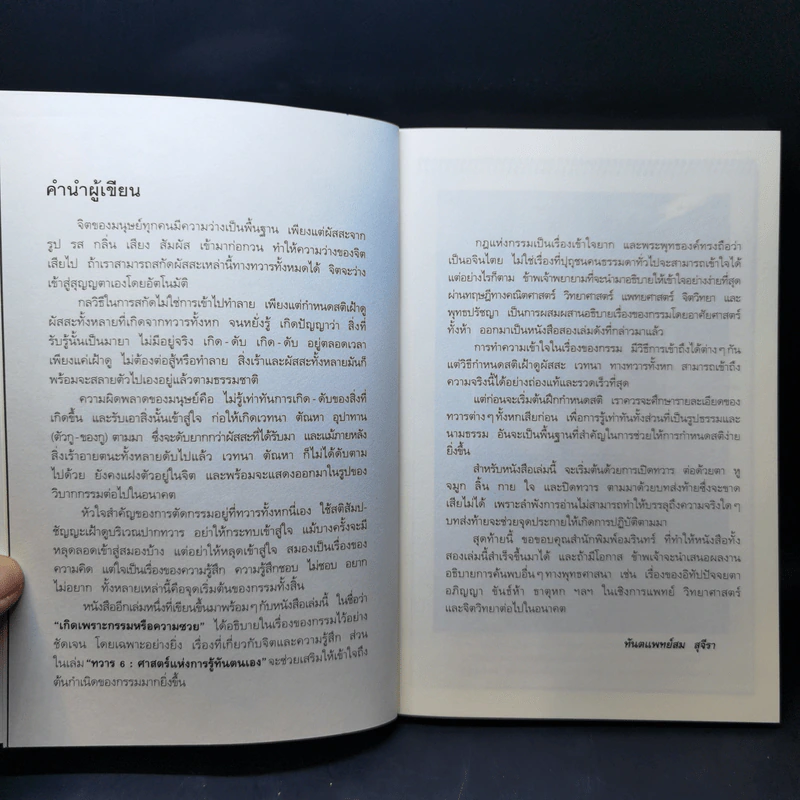 คำนำผู้เขียน
จิตของมนุษย์ทุกคนมีความว่างเป็นพื้นฐาน เพียงแต่ผัสสะจาก
รูป รส กลิ่น เสียง สัมผัส เข้ามาก่อกวน ทำให้ความว่างของจิต
เสียไป ถ้าเราสามารถสกัดผัสสะเหล่านี้ทางทวารทั้งหมดได้ จิตจะว่าง
เข้าสู่สุญญตาเองโดยอัตโนมัติ
กลวิธีในการสกัดไม่ใช่การเข้าไปทำลาย เพียงแต่กำหนดสติเฝ้าดู
ผัสสะทั้งหลายที่เกิดจากทวารทั้งหก จนหยั่งรู้ เกิดปัญญาว่า สิ่งที่
รับรู้นั้นเป็นมายา ไม่มีอยู่จริง เกิด-ดับ เกิด-ดับ อยู่ตลอดเวลา
เพียงแค่เฝ้าดู ไม่ต้องต่อสู้หรือทำลาย สิ่งเร้าและผัสสะทั้งหลายมันก็
พร้อมจะสลายตัวไปเองอยู่แล้วตามธรรมชาติ
ความผิดพลาดของมนุษย์คือ ไม่รู้เท่าทันการเกิด-ดับของสิ่งที่
เกิดขึ้น และรับเอาสิ่งนั้นเข้าสู่ใจ ก่อให้เกิดเวทนา ตัณหา อุปาทาน
(ตัวกู-ของกู) ตามมา ซึ่งจะดับยากกว่าผัสสะที่ได้รับมา และแม้ภายหลัง
สิ่งเร้าอายตนะทั้งหลายดับไปแล้ว เวทนา ตัณหา ก็ไม่ได้ดับตาม
ไปด้วย ยังคงแฝงตัวอยู่ในจิต และพร้อมจะแสดงออกมาในรูปของ
วิบากกรรมต่อไปในอนาคต
หัวใจสำคัญของการตัดกรรมอยู่ที่ทวารทั้งหกนี่เอง ใช้สติสัมป-
ชัญญะเฝ้าดูบริเวณปากทวาร อย่าให้กระทบเข้าสู่ใจ แม้บางครั้งจะมี
หลุดลอดเข้าสู่สมองบ้าง แต่อย่าให้หลุดเข้าสู่ใจ สมองเป็นเรื่องของ
ความคิด แต่ใจเป็นเรื่องของความรู้สึก ความรู้สึกชอบ ไม่ชอบ อยาก
ไม่อยาก ทั้งหลายเหล่านี้คือจุดเริ่มต้นของกรรมทั้งสิ้น
หนังสืออีกเล่มหนึ่งที่เขียนขึ้นมาพร้อมๆ กับหนังสือเล่มนี้ ในชื่อว่า
"เกิดเพราะกรรมหรือความซวย" ได้อธิบายในเรื่องของกรรมไว้อย่าง
ชัดเจน โดยเฉพาะอย่างยิ่ง เรื่องที่เกี่ยวกับจิตและความรู้สึก ส่วน
ในเล่ม "ทวาร 6 : ศาสตร์แห่งการรู้ทันตนเอง" จะช่วยเสริมให้เข้าใจถึง
ต้นกำเนิดของกรรมมากยิ่งขึ้น
กฎแห่งกรรมเป็นเรื่องเข้าใจยาก และพระพุทธองค์ทรงถือว่า
เป็นอจินไตย ไม่ใช่เรื่องที่ปุถุชนคนธรรมดาทั่วไปจะสามารถเข้าใจได้
แต่อย่างไรก็ตาม ข้าพเจ้าพยายามที่จะนำมาอธิบายให้เข้าใจอย่างง่ายที่สุด
ผ่านทฤษฎีทางคณิตศาสตร์ วิทยาศาสตร์ แพทยศาสตร์ จิตวิทยา และ
พุทธปรัชญา เป็นการผสมผสานอธิบายเรื่องของกรรมโดยอาศัยศาสตร์
ทั้งห้า ออกมาเป็นหนังสือสองเล่มดังที่กล่าวมาแล้ว
การทำความเข้าใจในเรื่องของกรรม มีวิธีการเข้าถึงได้ต่างๆ กัน
แต่วิธีกำหนดสติเฝ้าดูผัสสะ เวทนา ทางทวารทั้งหก สามารถเข้าถึง
ความจริงนี้ได้อย่างถ่องแท้และรวดเร็วที่สุด
แต่ก่อนจะเริ่มต้นฝึกกำหนดสติ เราควรจะศึกษารายละเอียดของ
ทวารต่างๆ ทั้งหกเสียก่อน เพื่อการรู้เท่าทันทั้งส่วนที่เป็นรูปธรรมและ
นามธรรม อันจะเป็นพื้นฐานที่สำคัญในการช่วยให้การกำหนดสติง่าย
ยิ่งขึ้น
สำหรับหนังสือเล่มนี้ จะเริ่มต้นด้วยการเปิดทวาร ต่อด้วยตา หู
จมูก ลิ้น กาย ใจ และปิดทวาร ตามมาด้วยบทส่งท้ายซึ่งจะขาด
เสียไม่ได้ เพราะลำพังการอ่านไม่สามารถทำให้บรรลุถึงความจริงใดๆ
บทส่งท้ายจะช่วยจุดประกายให้เกิดการปฏิบัติตามมา
สุดท้ายนี้ ขอขอบคุณสำนักพิมพ์อมรินทร์ ที่ทำให้หนังสือทั้ง
สองเล่มนี้สำเร็จขึ้นมาได้ และถ้ามีโอกาส ข้าพเจ้าจะนำเสนอผลงาน
อธิบายการค้นพบอื่นๆ ทางพุทธศาสนา เช่น เรื่องของอิทัปปัจจยตา
อภิญญา ขันธ์ห้า ธาตุหก ฯลฯ ในเชิงการแพทย์ วิทยาศาสตร์
และจิตวิทยาต่อไปในอนาคต
ทันตแพทย์สม สุจีรา